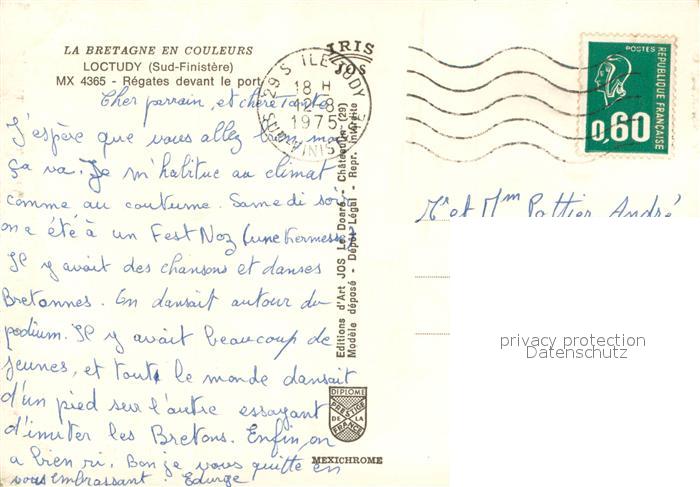 LA BRETAGNE EN COULEURS
LOCTUDY (Sud-Finistère)
MX 4365 - Régates devant le port
IRIS
JOS
29 S ILE TUDY
18 H
12-8
1975
SUD FINISTERE
POSTES
REPUBLIQUE FRANÇAISE
0,60
Cher parrain, et chère Tante
J'espère que vous allez bien, moi
ça va. Je m'habitue au climat
comme au coutume. Samedi soir
on a été à un Fest Noz (une Kermesse)
Il y avait des chansons et danses
Bretonnes. On dansait autour du
podium. Il y avait beaucoup de
jeunes, et toute le monde dansait
d'un pied sur l'autre essayant
d'imiter les Bretons. Enfin, on
a bien ri. Bon je vous quitte en
vous embrassant.
Mr et Mm Pottier André
Editions d'Art JOS Le Doaré - Châteaulin (29)
Modèle déposé - Dépôt Légal - Repr. Interdite
privacy protection
Datenschutz
DIPLOME
PRESTIGE
DE LA
FRANCE
MEXICHROME